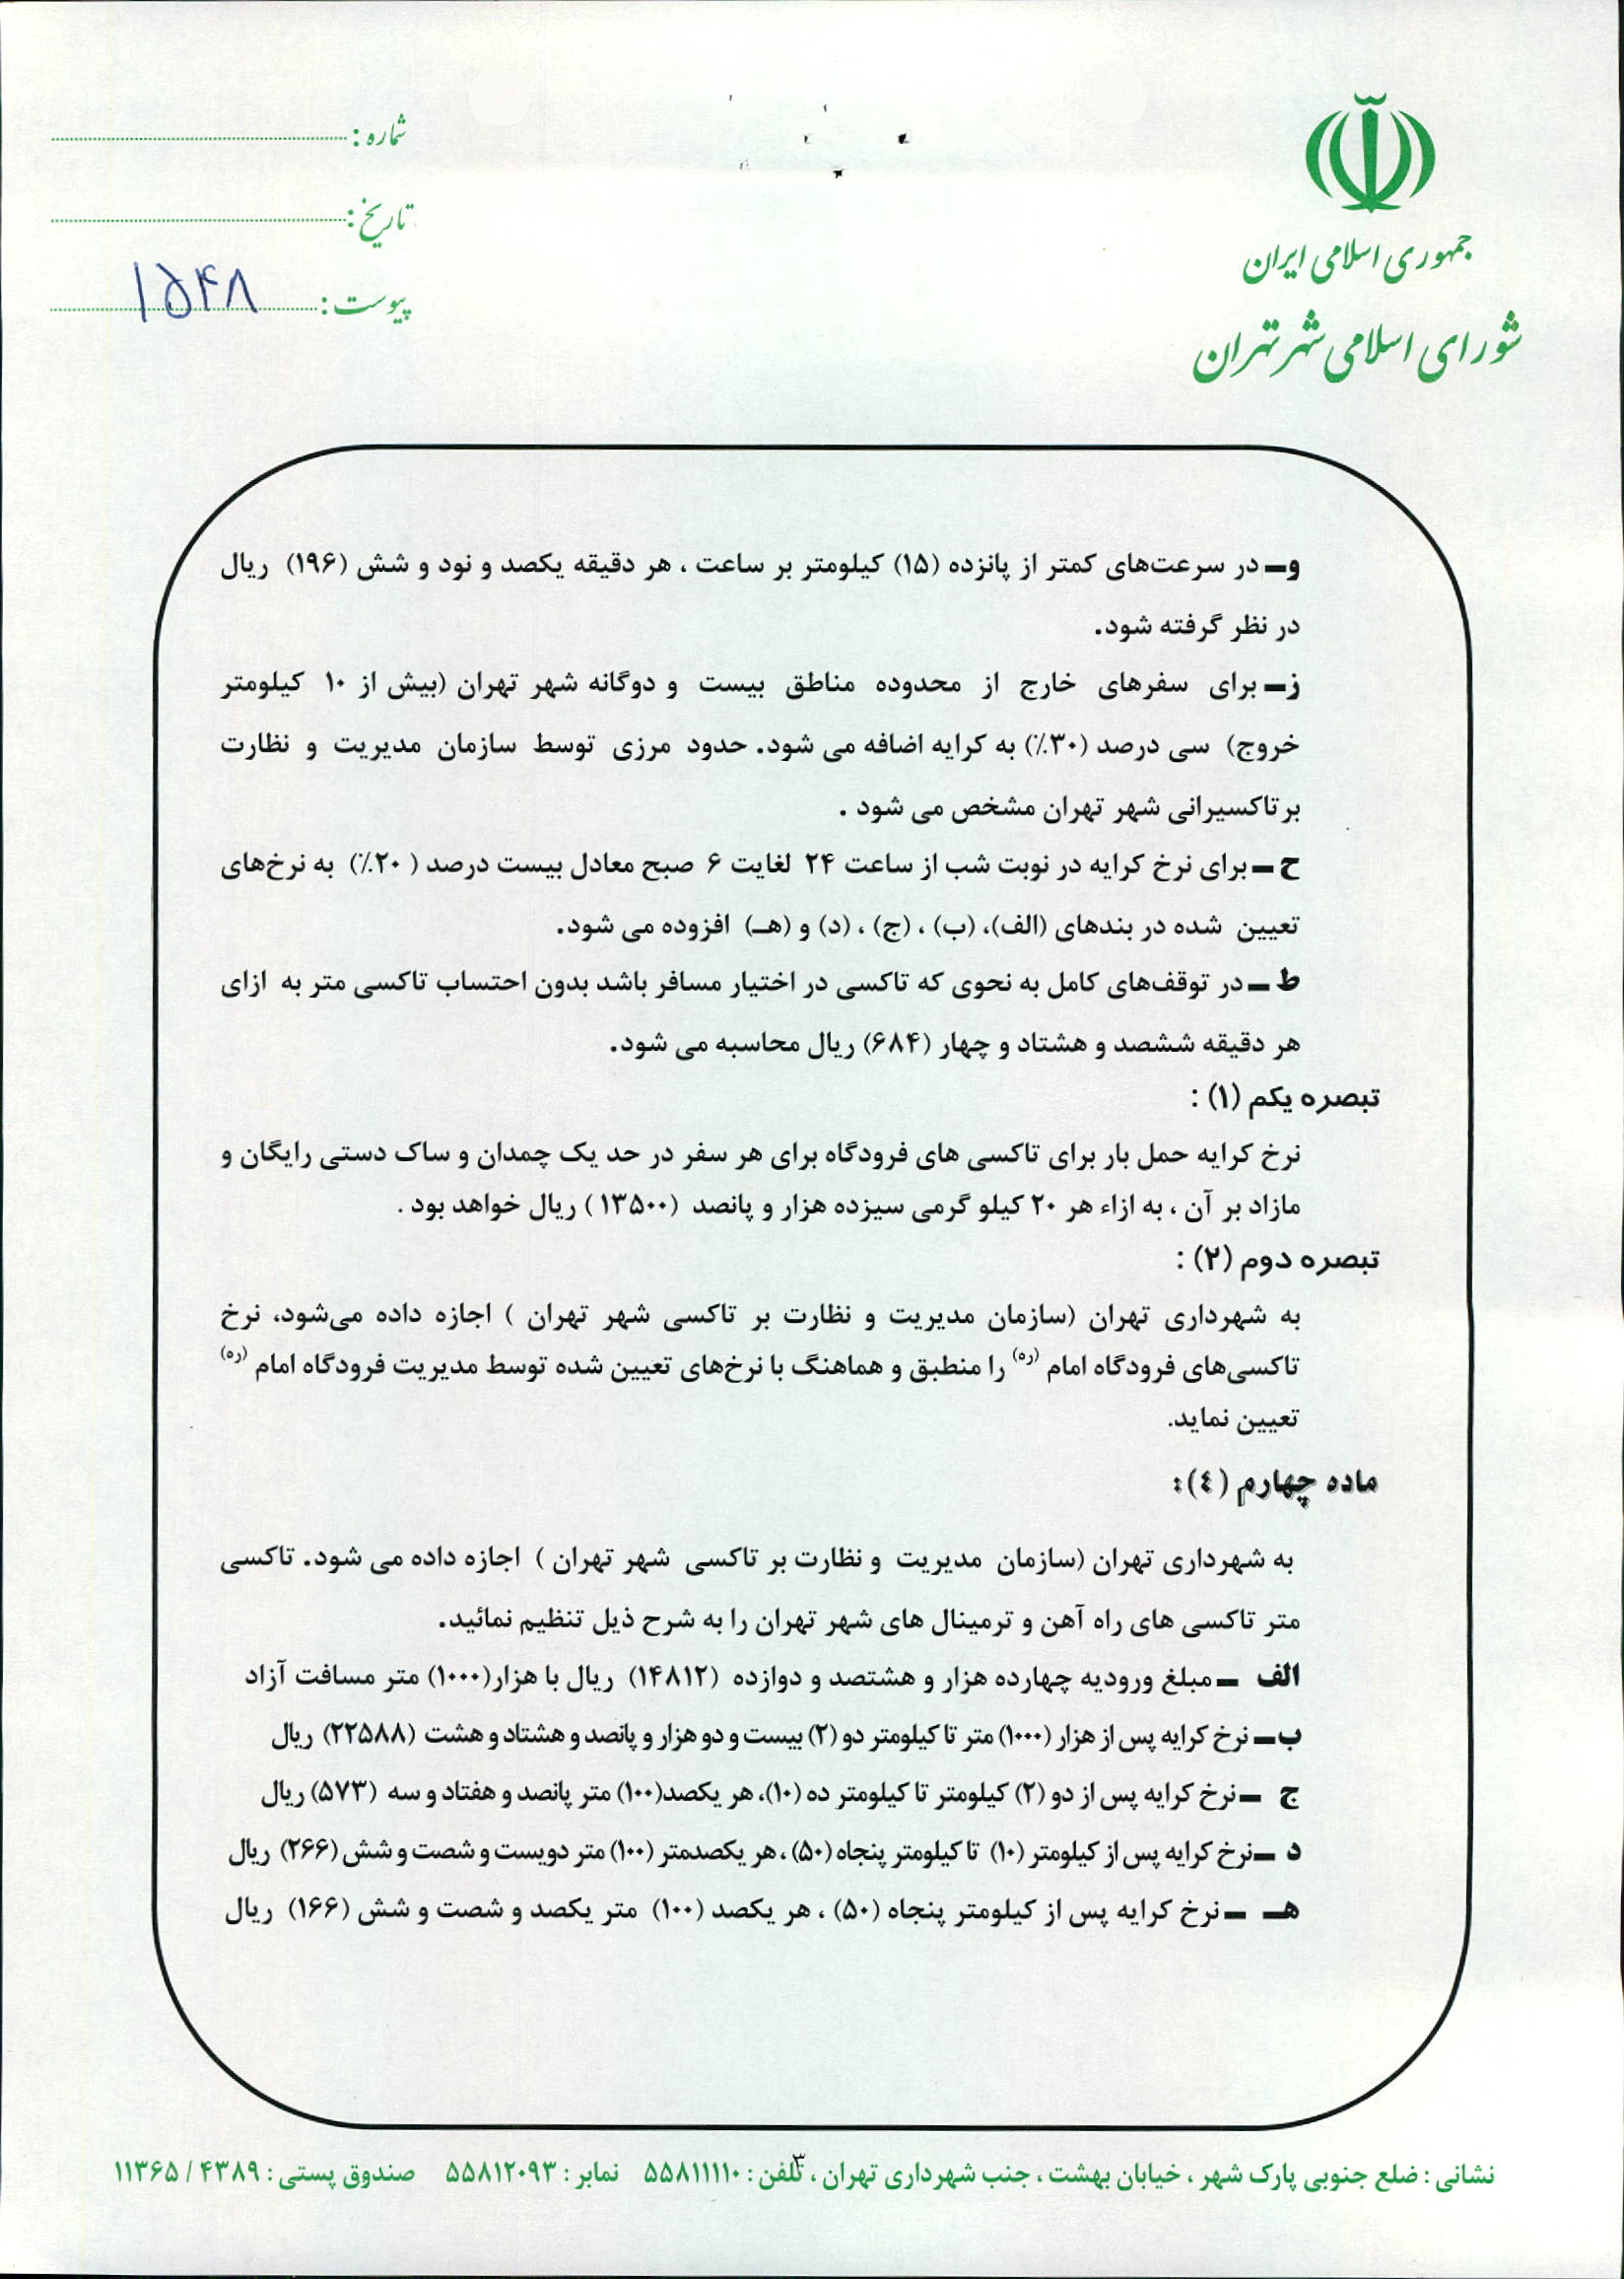 جمهوری اسلامی ایران
شورای اسلامی شهر تهران
شماره :
تاریخ :
پیوست : ۱۵۴۸
و- در سرعت‌های کمتر از پانزده (۱۵) کیلومتر بر ساعت ، هر دقیقه یکصد و نود و شش (۱۹۶) ریال
در نظر گرفته شود.
ز- برای سفرهای خارج از محدوده مناطق بیست و دوگانه شهر تهران (بیش از ۱۰ کیلومتر
خروج) سی درصد (۳۰٪) به کرایه اضافه می شود. حدود مرزی توسط سازمان مدیریت و نظارت
برتاکسیرانی شهر تهران مشخص می شود .
ح- برای نرخ کرایه در نوبت شب از ساعت ۲۴ لغایت ۶ صبح معادل بیست درصد ( ۲۰٪) به نرخ‌های
تعیین شده در بندهای (الف)، (ب) ، (ج) ، (د) و (هـ) افزوده می شود.
ط- در توقف‌های کامل به نحوی که تاکسی در اختیار مسافر باشد بدون احتساب تاکسی متر به ازای
هر دقیقه ششصد و هشتاد و چهار (۶۸۴) ریال محاسبه می شود.
تبصره یکم (۱) :
نرخ کرایه حمل بار برای تاکسی های فرودگاه برای هر سفر در حد یک چمدان و ساک دستی رایگان و
مازاد بر آن ، به ازاء هر ۲۰ کیلو گرمی سیزده هزار و پانصد (۱۳۵۰۰ ) ریال خواهد بود .
تبصره دوم (۲) :
به شهرداری تهران (سازمان مدیریت و نظارت بر تاکسی شهر تهران ) اجازه داده می‌شود، نرخ
تاکسی‌های فرودگاه امام (ره) را منطبق و هماهنگ با نرخ‌های تعیین شده توسط مدیریت فرودگاه امام (ره)
تعیین نماید.
ماده چهارم (٤):
به شهرداری تهران (سازمان مدیریت و نظارت بر تاکسی شهر تهران ) اجازه داده می شود. تاکسی
متر تاکسی های راه آهن و ترمینال های شهر تهران را به شرح ذیل تنظیم نمائید.
الف - مبلغ ورودیه چهارده هزار و هشتصد و دوازده (۱۴۸۱۲) ریال با هزار(۱۰۰۰) متر مسافت آزاد
ب- نرخ کرایه پس از هزار (۱۰۰۰) متر تا کیلومتر دو (۲) بیست و دو هزار و پانصد و هشتاد و هشت (۲۲۵۸۸) ریال
ج - نرخ کرایه پس از دو (۲) کیلومتر تا کیلومتر ده (۱۰)، هر یکصد(۱۰۰) متر پانصد و هفتاد و سه (۵۷۳) ریال
د -نرخ کرایه پس از کیلومتر (۱۰) تا کیلومتر پنجاه (۵۰) ، هر یکصدمتر (۱۰۰) متر دویست و شصت و شش (۲۶۶) ریال
هـ - نرخ کرایه پس از کیلومتر پنجاه (۵۰) ، هر یکصد (۱۰۰) متر یکصد و شصت و شش (۱۶۶) ریال
۳
نشانی : ضلع جنوبی پارک شهر ، خیابان بهشت ، جنب شهرداری تهران ، تلفن : ۵۵۸۱۱۱۱۰ نمابر : ۵۵۸۱۲۰۹۳ صندوق پستی : ۴۳۸۹ / ۱۱۳۶۵